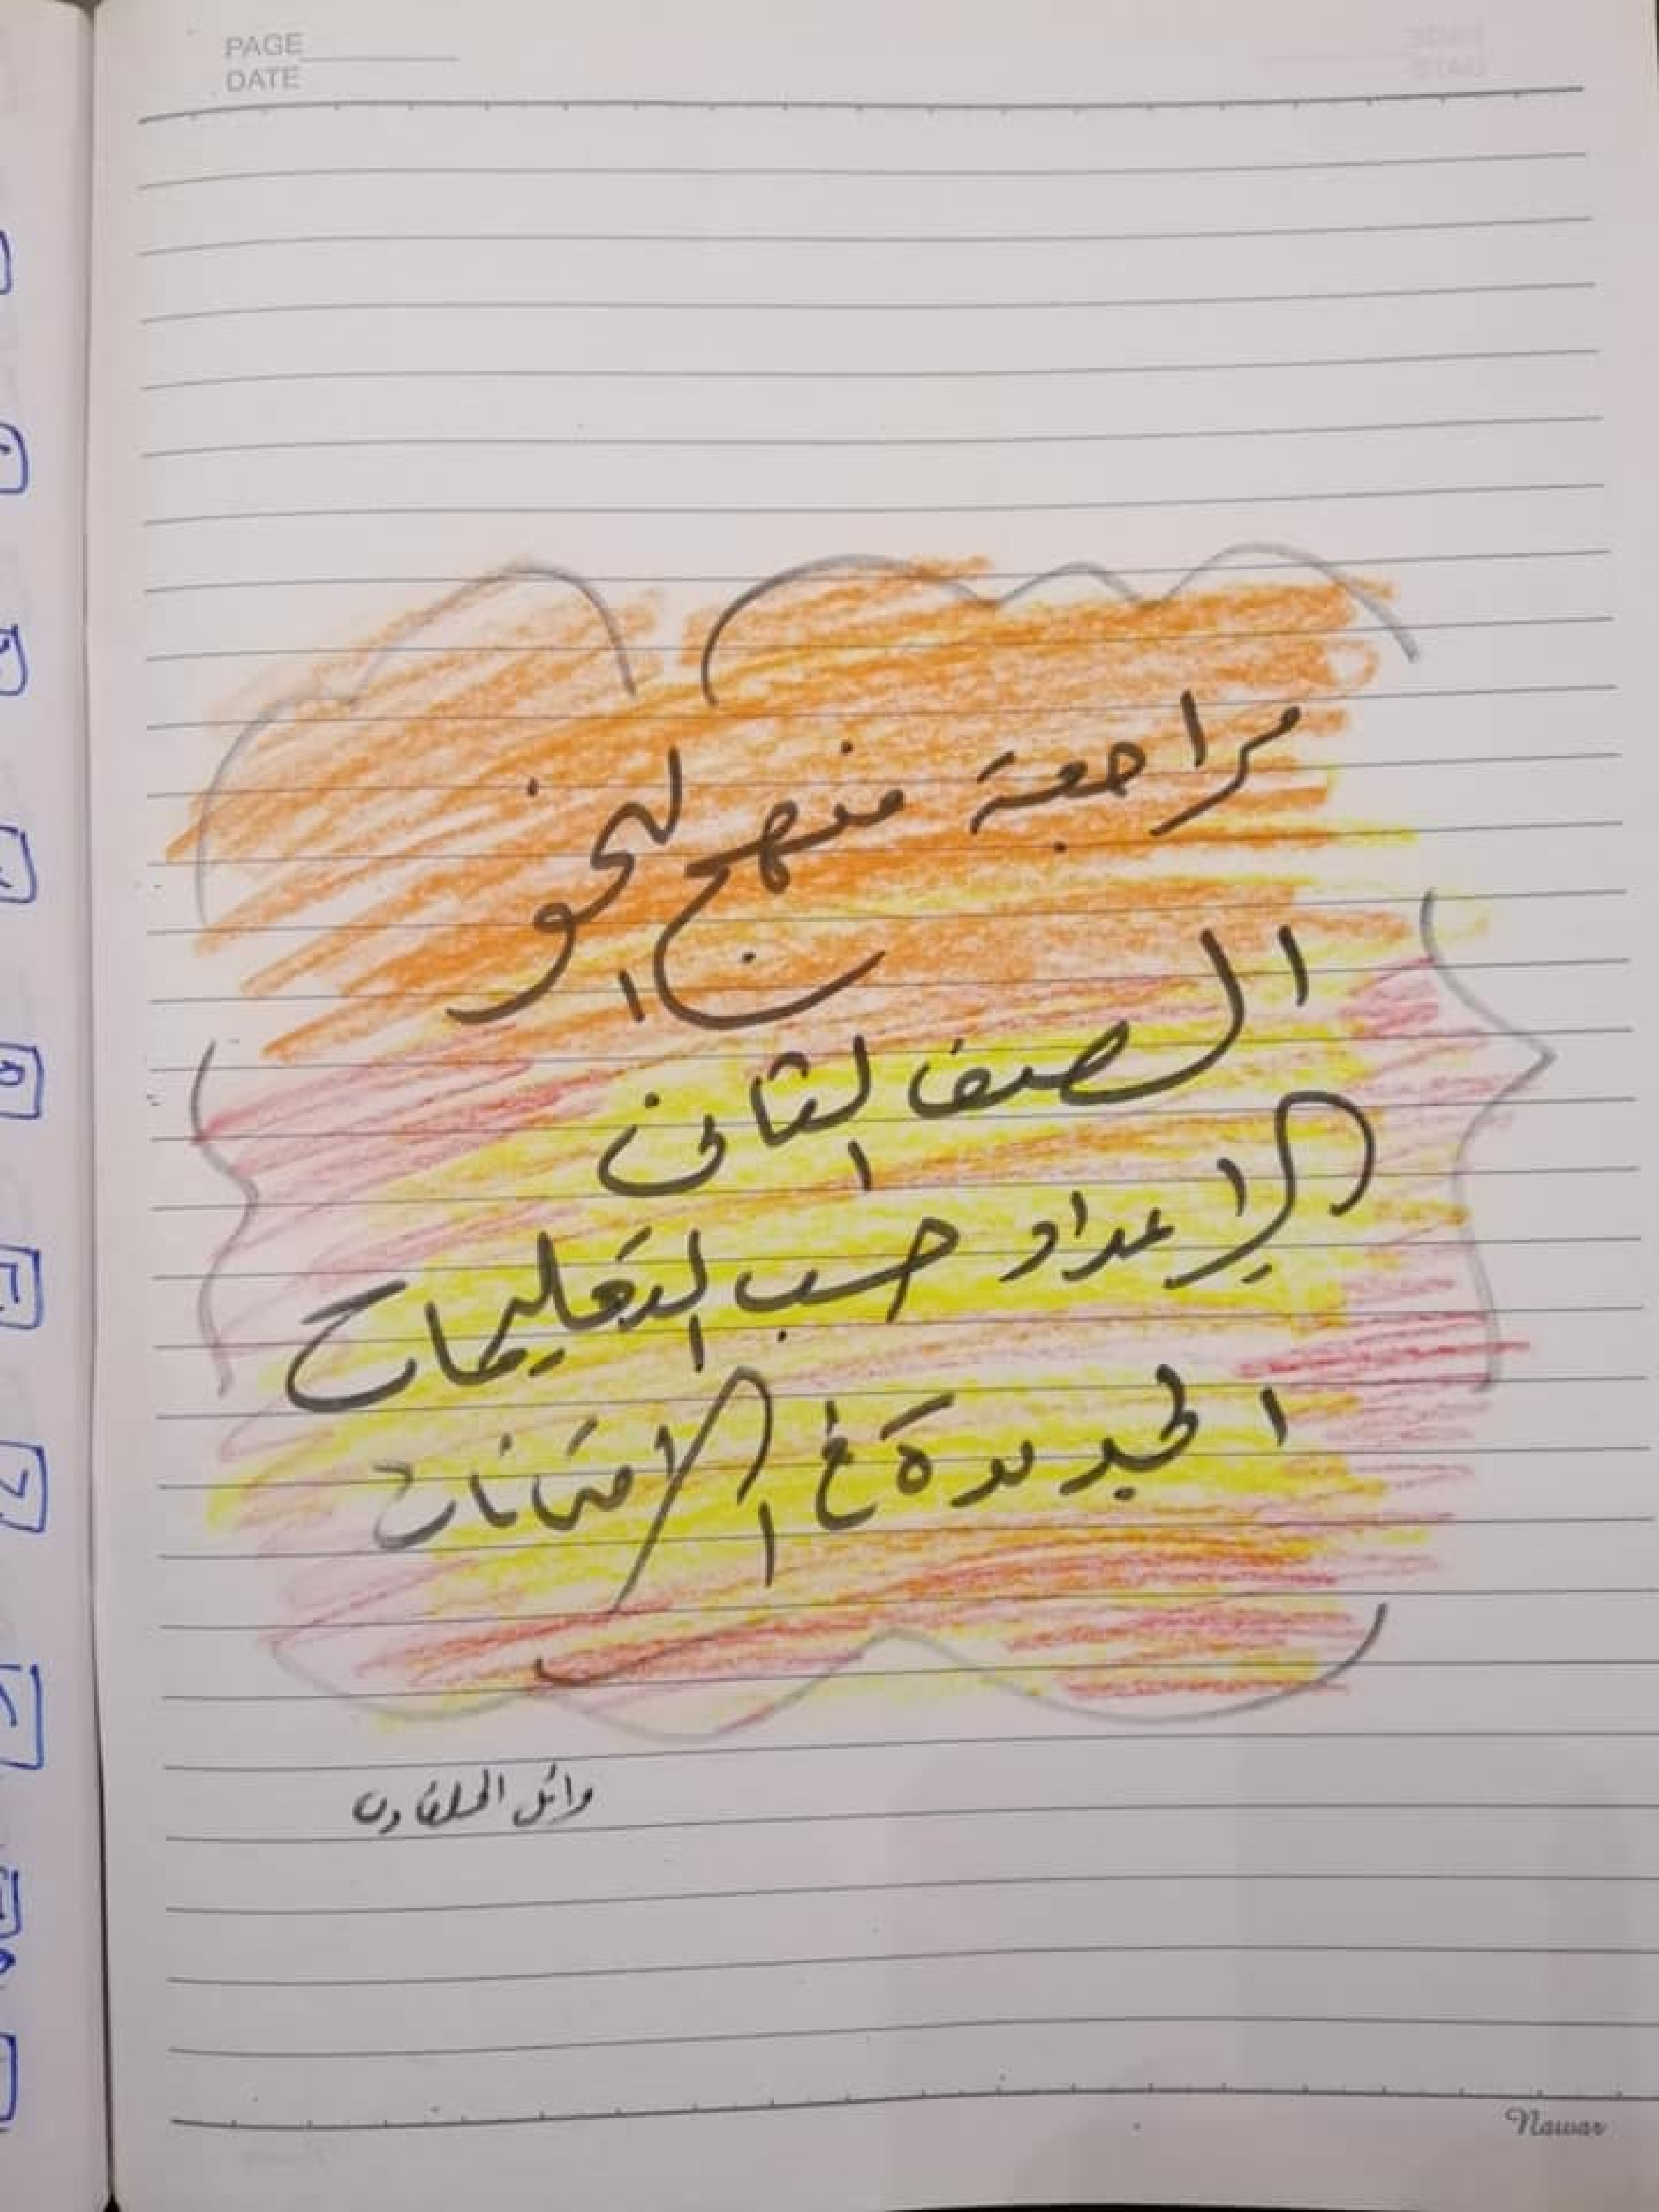 PAGE
DATE
مراجعة منهج النحو
الصف الثانى
الإعداد حسب التعليمات
الجديدة فى الامتحانات
وائل
Nawar